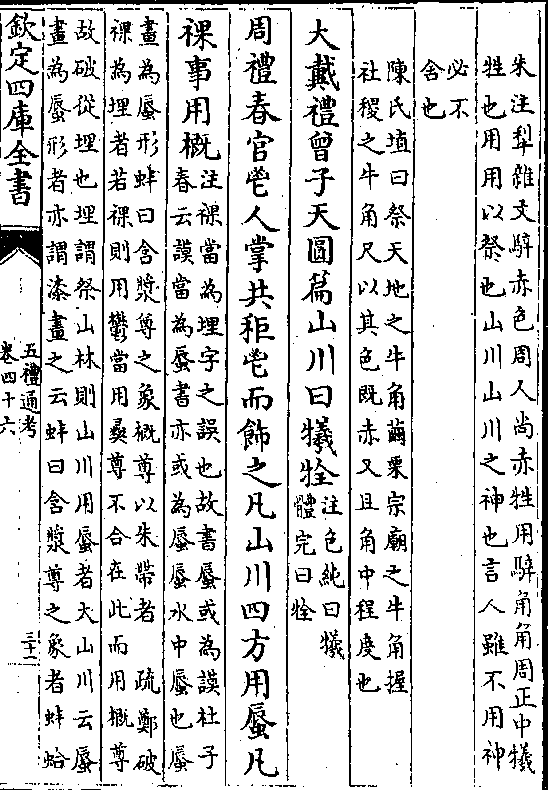 朱注犁雜文騂赤色周人尚赤牲用騂角角周正中犧
牲也用用以祭也山川山川之神也言人雖不用神
必不
舍也
陳氏埴曰祭天地之牛角繭栗宗廟之牛角握
社稷之牛角尺以其色既赤又且角中程度也
大戴禮曾子天圓篇山川曰犧牷注色純曰犧
體完曰牷
周禮春官鬯人掌共秬鬯而飾之凡山川四方用蜃凡
祼事用概注祼當為埋字之誤也故書蜃或為謨杜子
春云謨當為蜃書亦或為蜃蜃水中蜃也蜃
畫為蜃形蚌曰含漿尊之象概尊以朱帶者 疏鄭破
祼為埋者若祼則用鬱當用彝尊不合在此而用概尊
故破從埋也埋謂祭山林則山川用蜃者大山川云蜃
畫為蜃形者亦謂漆畫之云蚌曰含漿尊之象者蚌蛤
欽定四庫全書
五禮通考
卷四十六
三十二